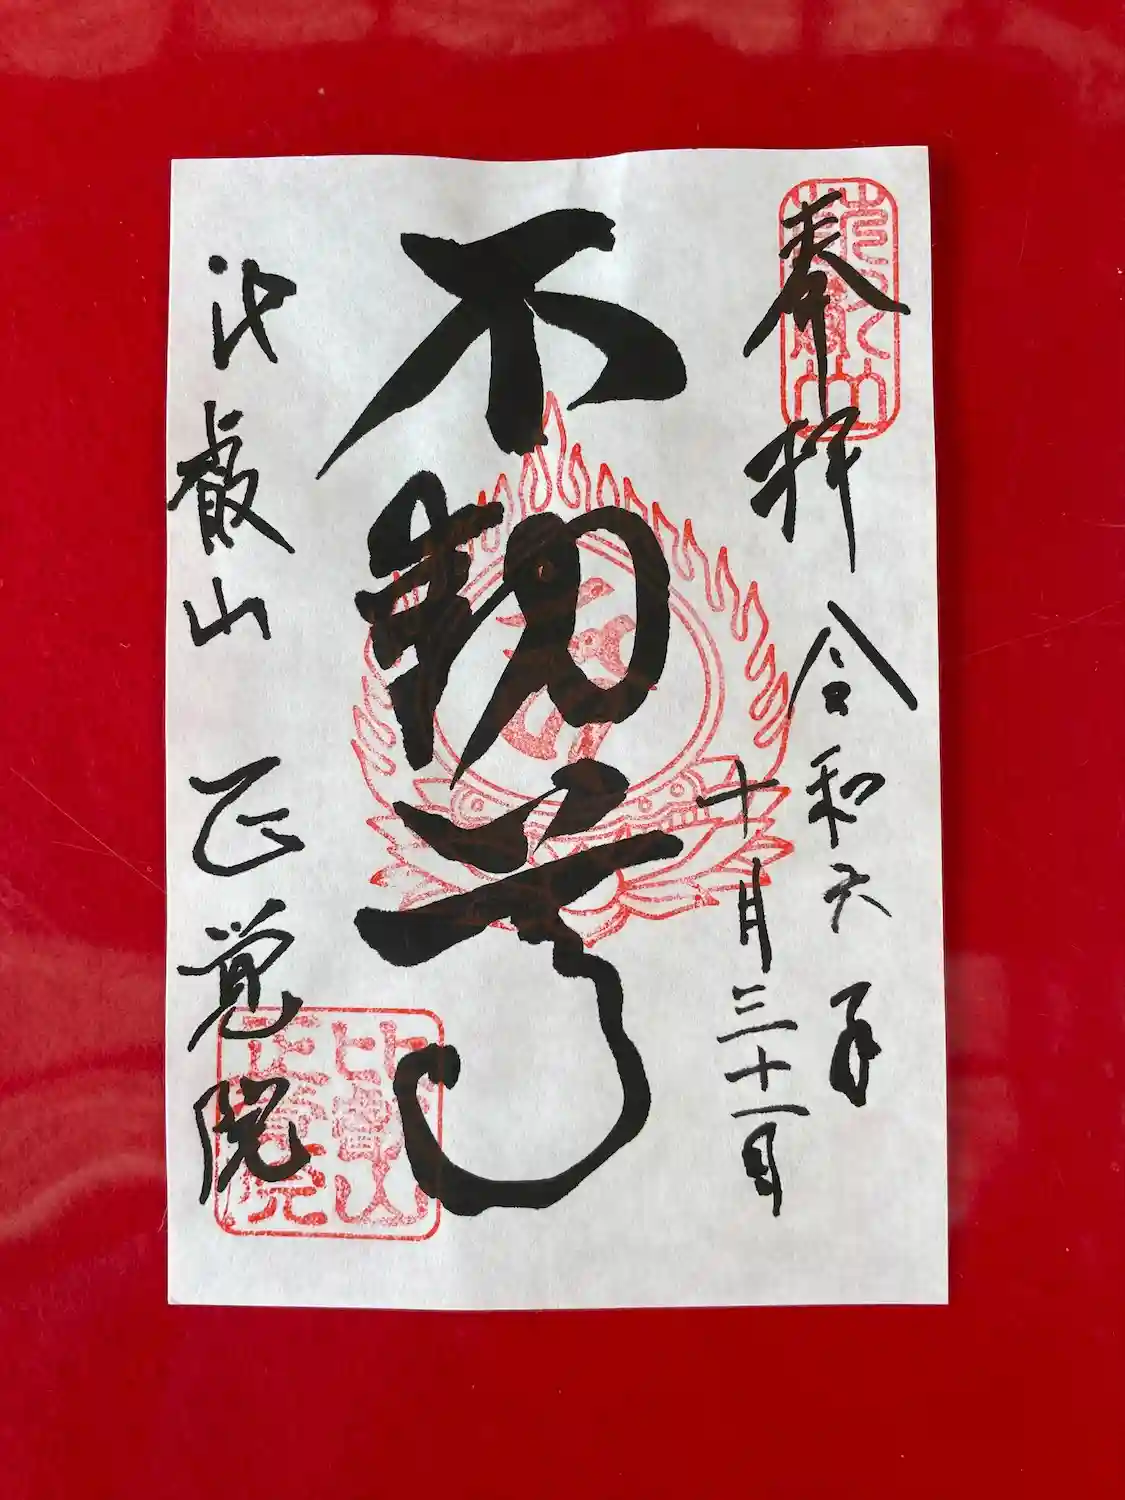 奉拝 令和六年
十月三十一日
不動尊
比叡山 正覚院
比叡山
正覺院